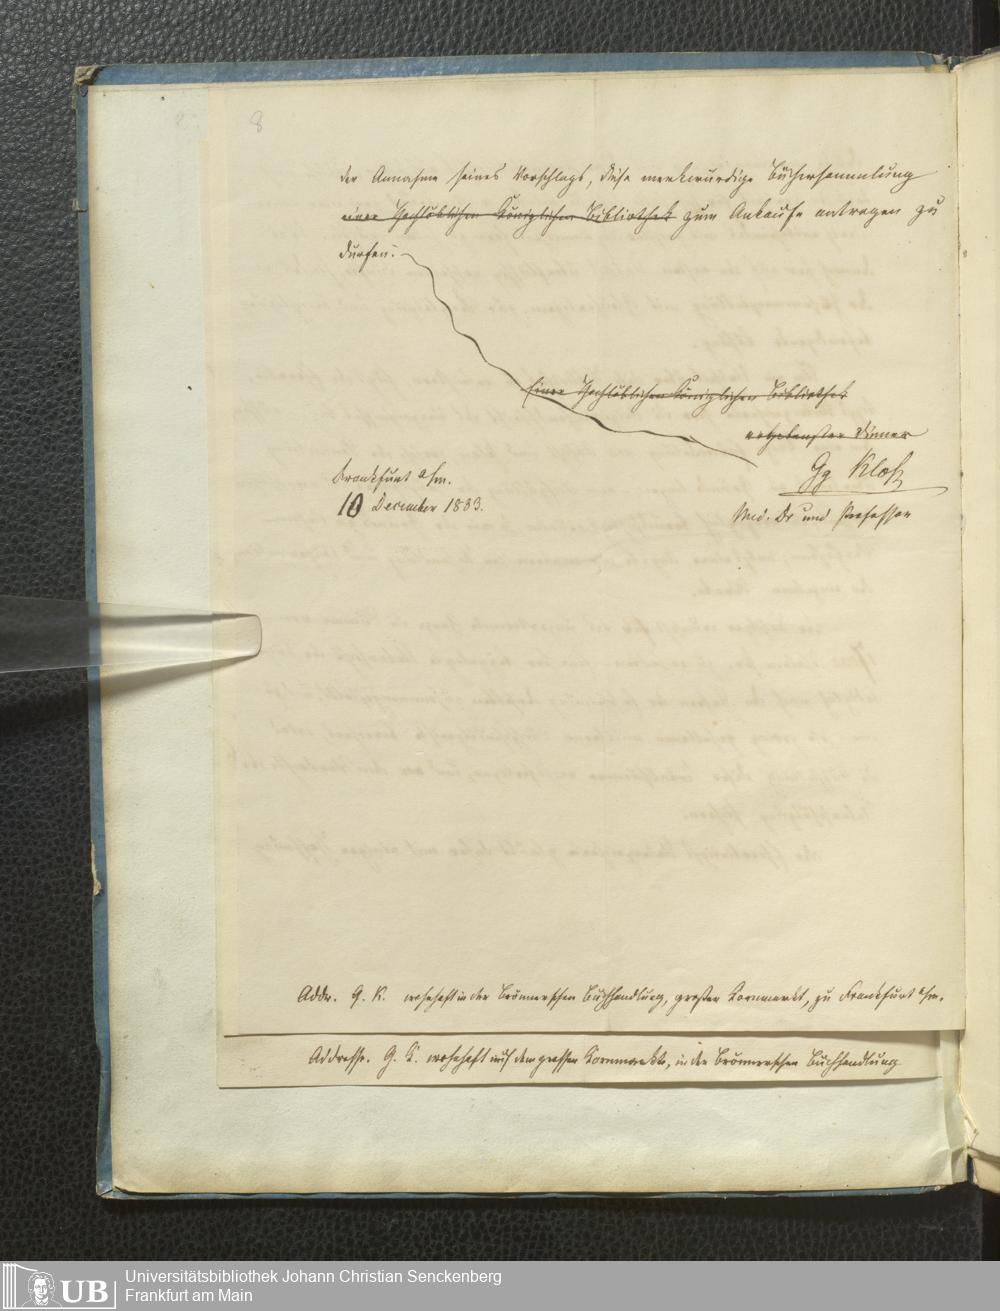 8
der Annahme seines Vorschlags, diese merkwürdige Büchersammlung
einer Hochlöblichen Königlichen Bibliothek zum Ankaufe antragen zu
dürfen.
Einer Hochlöblichen Königlichen Bibliothek
ergebenster Diener
Gg Kloß
Med. Dr und Professor
Frankfurt a/m.
10 December 1833.
Addr. G. K. wohnhaft in der Brönnerschen Buchhandlung, großer Kornmarkt, zu Frankfurt a/m.
Addresse. G. K. wohnhaft auf dem grossen Kornmarkte, in der Brönnerschen Buchhandlung
UB
Universitätsbibliothek Johann Christian Senckenberg
Frankfurt am Main